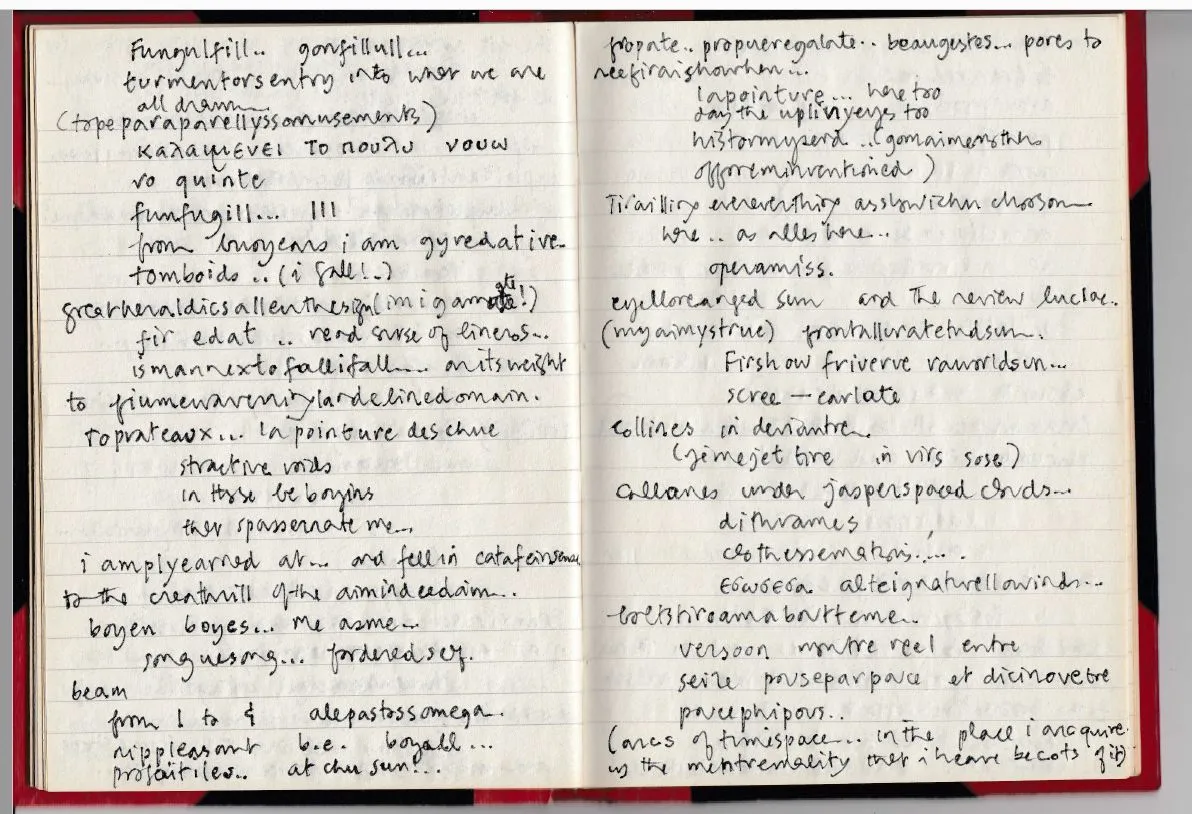 Fungulfill.. gonfillull...
turmentorsentry into what we are
all drawn....
(topeparaparellyssomusements)
καλαψενει το πουλυ νουω
vo quinte
funfugill... !!!
from buoyears i am gyredative.
tomboids ..(i fall!..)
greatheraldicsallenthesign(imigam
fir edat .. read surse of lineros...
ismannextofallifall.... onitsweight
to fiumewavenirylardelinedomain.
toprateaux... lapointure deschue
stractive voids
in those be boygins
they spassernate me...
i amplyearned at... and fellin
to the creathrill of the aimindeedaim...
boyen boyes... me asme...
songuesong... forderedsey.
beam
from 1 to & alepastossomega.
nippleasant b.e. boyall ...
at chu sun!...
fropate.. propueregalate.. beaugestes... pores to
neefiraishowhen...
lapointure... here too
day the uplivyeyes too
histormyperd ..(gomaimensthis
offoreminventioned )
Tiraillirx evereventhirx asslowichn choosom
here .. as alleshere...
operamiss.
eyelloreanged sum and the review luclae..
(myaimystrue) frontalluratetndsun..
Firshow friverve raworldsun...
scree — earlate
collines in deviantre..
(jemejettire in virs sose)
callanes under jasperspaced clouds...
dithrames
clothessemations.....
εσωσεσα. alteignaturellowinds...
boltstiroamaboutteme...
versoon montre reel entre
seize pouseparpace et dicinovetre
pacephipous..
(arcs of timespace... in the place i anacquire.
in the mentremality that i heare becots of it)